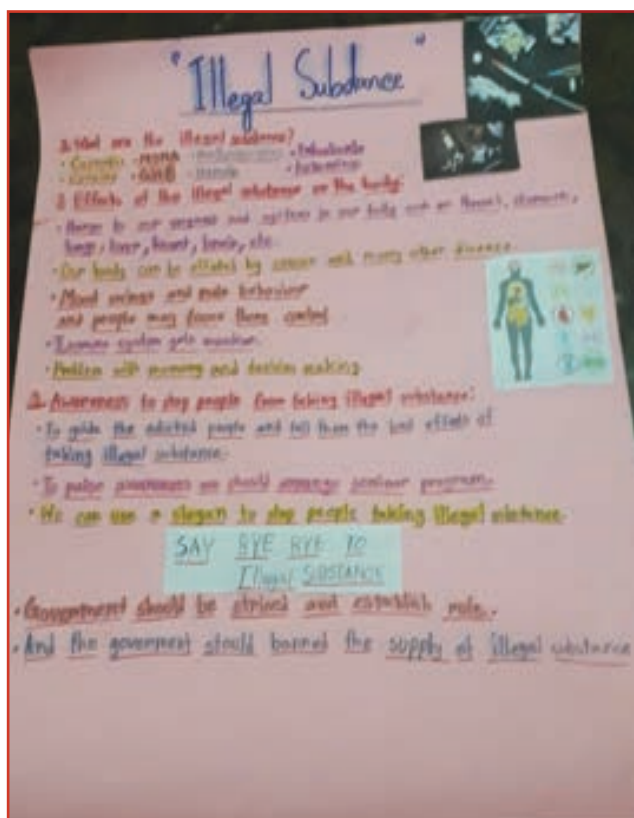 "Illegal Substance"
What are the illegal substance?
• Cannabis • MDMA
• GHB • Ketamine
Effects of the illegal substance on the body:
• Harm to our organs and systems in our body such as throat, stomach,
lungs, liver, heart, brain, etc.
• Our body can be effated by cancer and many other disease.
• Mood swings and rude behaviour
and people may loose there control
• Immune system gets weaker.
• Problem with memory and decision making.
Awareness to stop people from taking illegal substance:
• To guide the addicted people and tell them the bad effects of
taking illegal substance.
• To raise awareness we should arrange seminar program.
• We can use a slogan to stop people taking illegal substance.
SAY BYE BYE TO
Illegal SUBSTANCE
• Government should be and establish rule.
• And the goverment should banned the supply of illegal substance